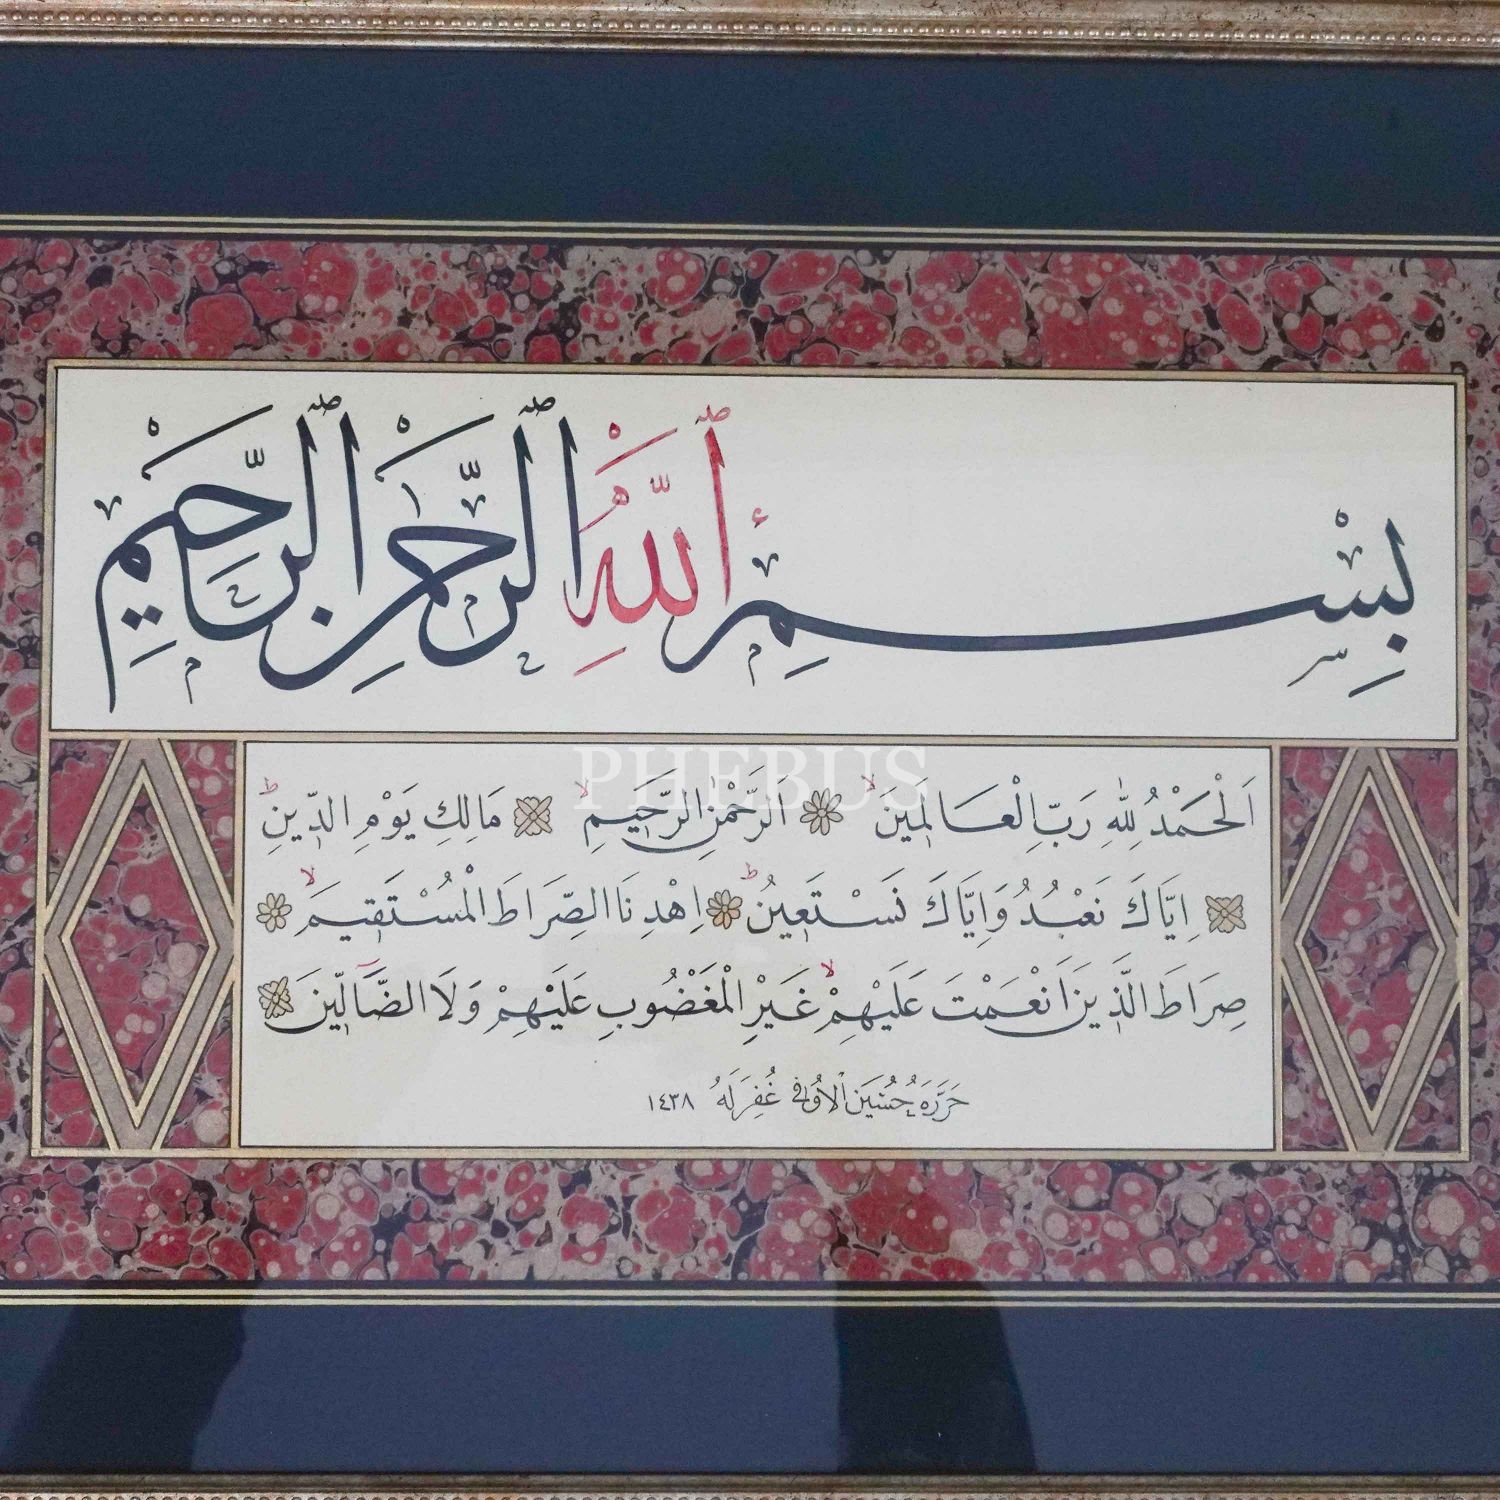 بِسْمِ ٱللّٰهِ ٱلرَّحْمٰنِ ٱلرَّحِيْمِ
PHEBUS
اَلْحَمْدُ لِلّٰهِ رَبِّ الْعَالَمِينَۙ ۞ اَلرَّحْمٰنِ الرَّحِيمِۙ ۞ مَالِكِ يَوْمِ الدِّينِۜ
۞ اِيَّاكَ نَعْبُدُ وَاِيَّاكَ نَسْتَعِينُۜ ۞ اِهْدِنَا الصِّرَاطَ الْمُسْتَقِيمَۙ ۞
صِرَاطَ الَّذِينَ اَنْعَمْتَ عَلَيْهِمْۙ غَيْرِ الْمَغْضُوبِ عَلَيْهِمْ وَلَا الضَّٓالِّينَ ۞
حَرَّرَهُ حُسَيْن الْاُوفِى غُفِرَلَهُ ١٤٣٨